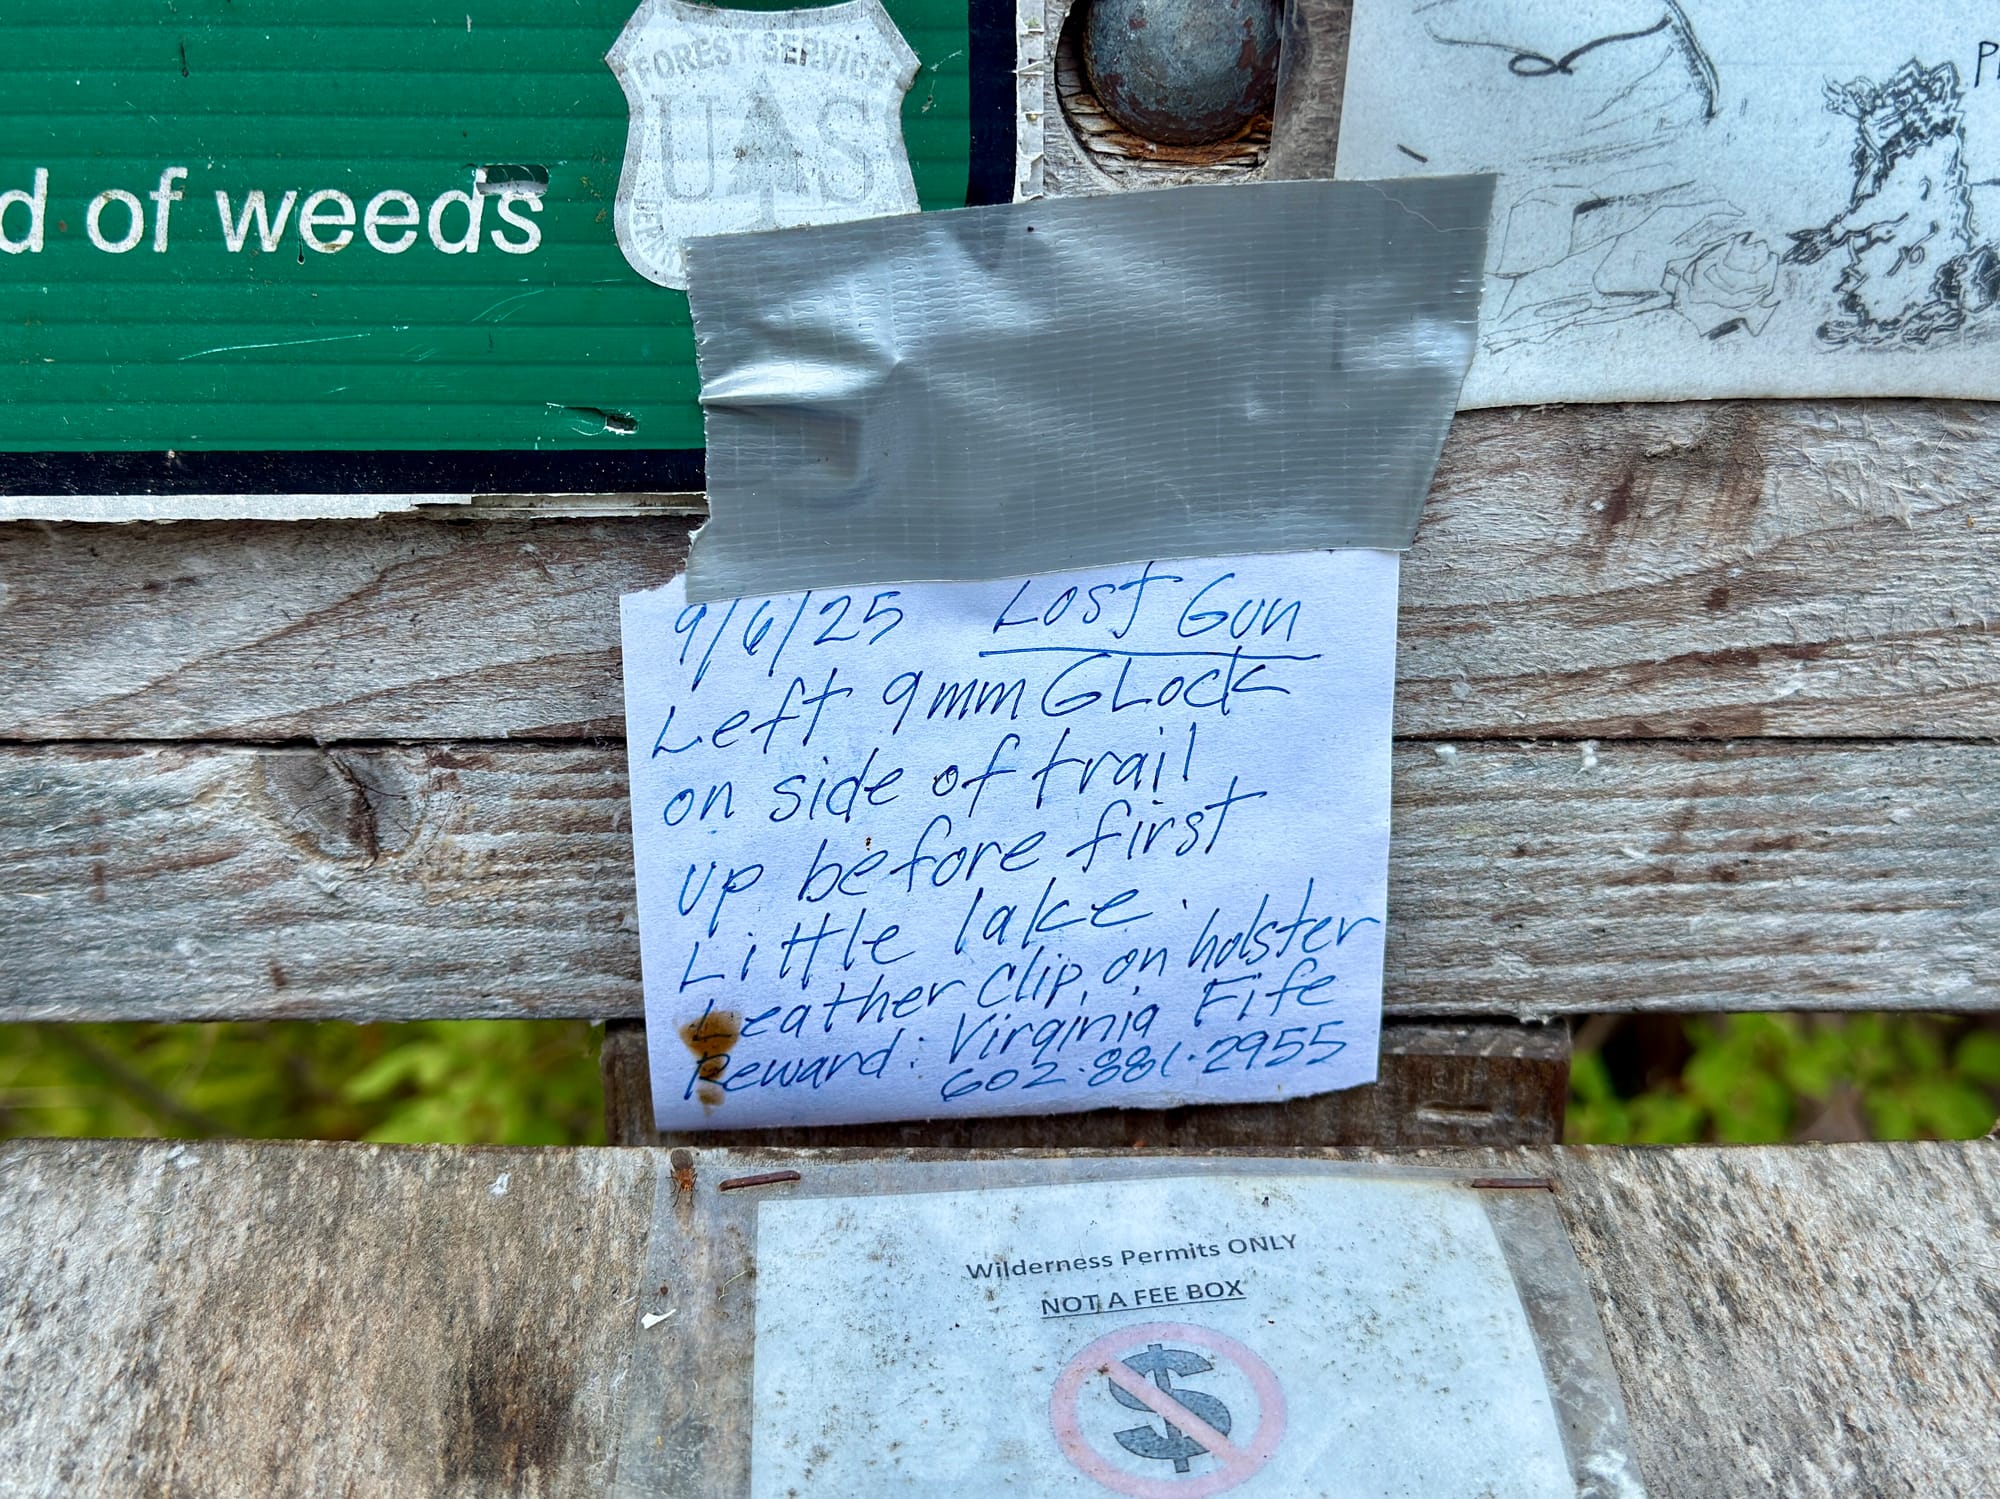 FOREST SERVICE
U S
d of weeds
9/6/25 Lost Gun
Left 9mm GLock
on side of trail
up before first
Little lake.
Leather clip on holster
Reward: Virginia Fife
602.881.2955
Wilderness Permits ONLY
NOT A FEE BOX
$